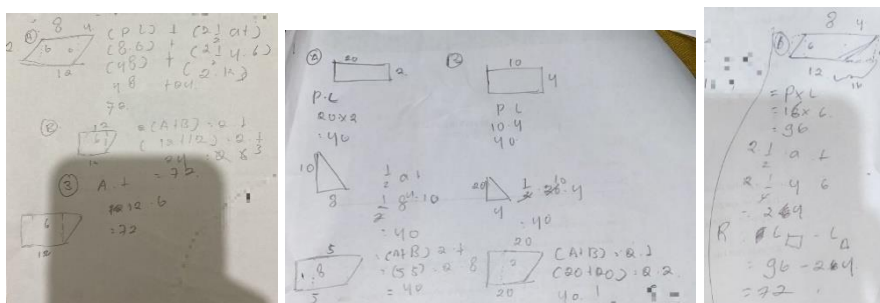 A
8 4
6
12
(P L) + (2 1/2 a t)
(8.6) + (2 1/2 4.6)
(48) + (2.12)
48 + 24
72
12
6
= (A+B) = 2 . t
(12+12) = 2 .
= 72
3
A . t
12 . 6
= 72
6
12
A
20
2
P.L
20x2
= 40
10
4
P.L
10.4
40.
10
8
1/2 a t
1/2 8 . 10
= 40
20
4
= 40
5
8
5
= (A+B) 2 t
= (5 5) . 2 8
= 40
20
2
20
(A+B) = 2 . t
(20+20) = 2.2.
40
8 4
6
12
16
= PxL
= 16x6
= 96
2 1/2 a t
2 1/2 4 6
= 24
R
= 96 - 24
= 72